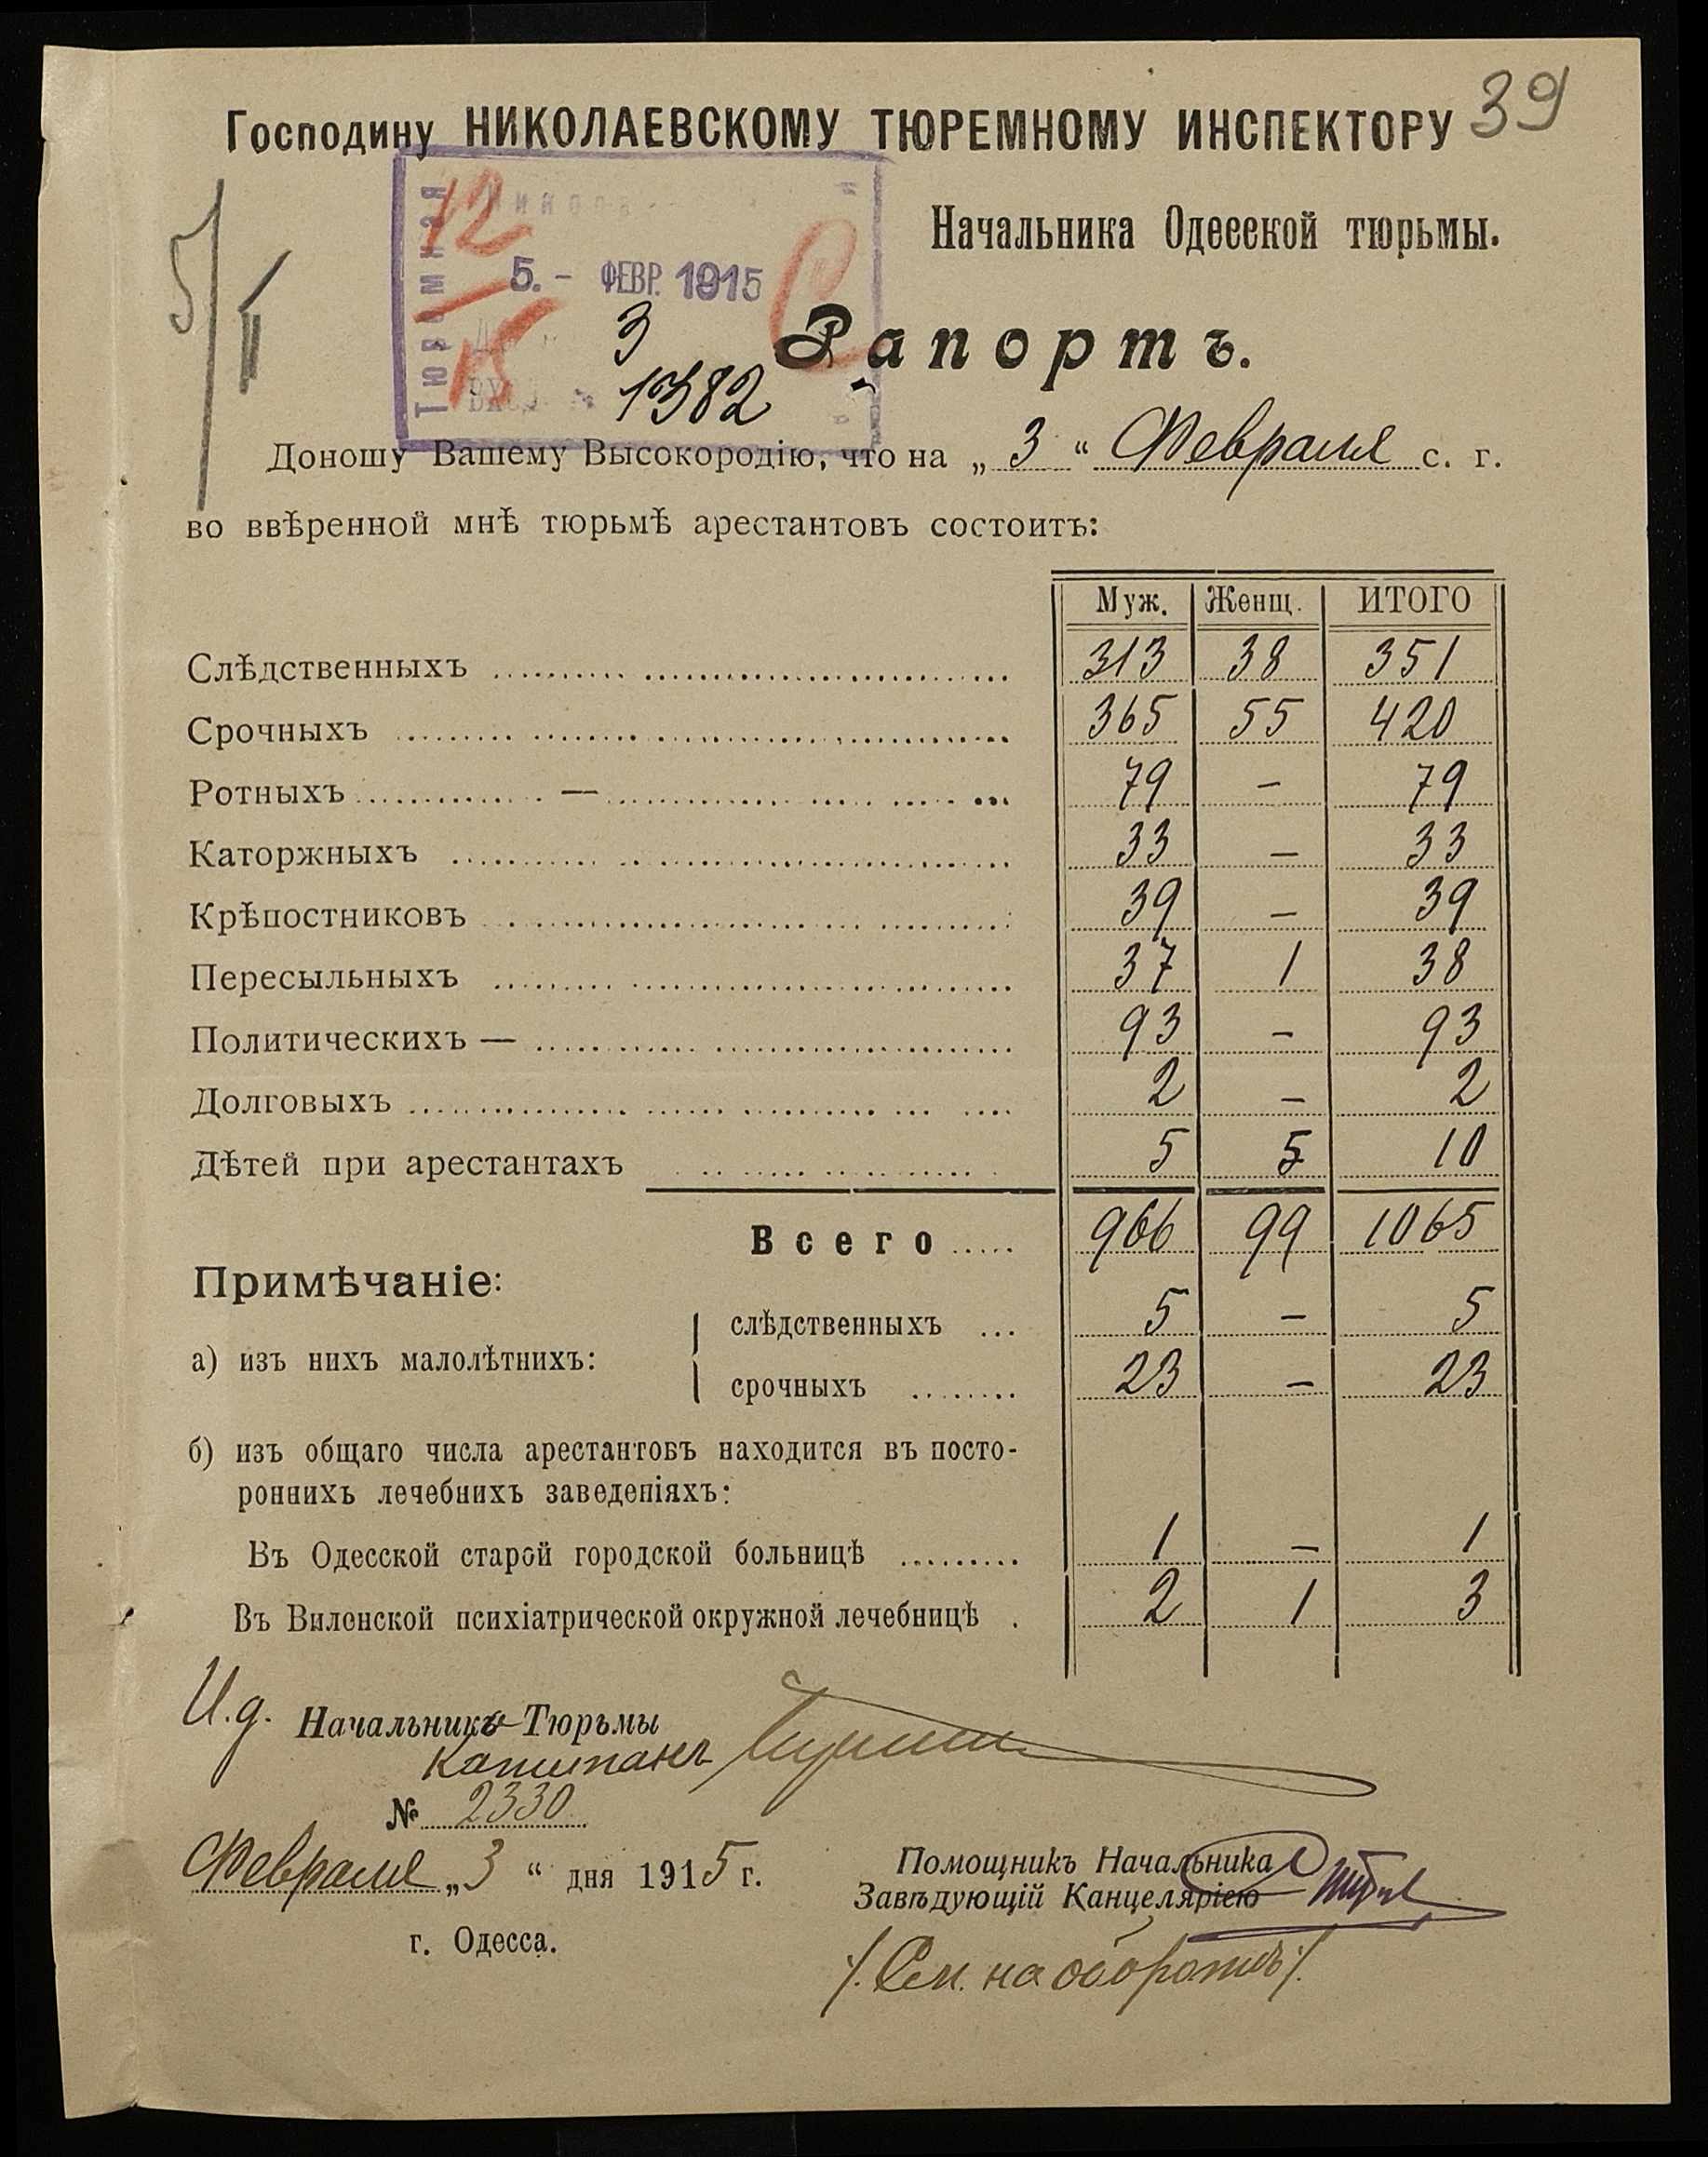 39
Господину НИКОЛАЕВСКОМУ ТЮРЕМНОМУ ИНСПЕКТОРУ
Начальника Одесской тюрьмы.
5/II
ТЮРЕМНАЯ
12
15
5. - ФЕВР. 1915
3
1382
Рапортъ.
Доношу Вашему Высокородію, что на „ 3 “ Февраля с. г.
во ввѣренной мнѣ тюрьмѣ арестантовъ состоитъ:
Муж. Женщ. ИТОГО
Слѣдственныхъ 313 38 351
Срочныхъ 365 55 420
Ротныхъ — 79 - 79
Каторжныхъ 33 - 33
Крѣпостниковъ 39 - 39
Пересыльныхъ 37 1 38
Политическихъ — 93 - 93
Долговыхъ 2 - 2
Дѣтей при арестантахъ 5 5 10
Всего 966 99 1065
Примѣчаніе:
а) изъ нихъ малолѣтнихъ:
слѣдственныхъ 5 - 5
срочныхъ 23 - 23
б) изъ общаго числа арестантовъ находится въ посто-
роннихъ лечебнихъ заведеніяхъ:
Въ Одесской старой городской больницѣ 1 - 1
Въ Виленской психіатрической окружной лечебницѣ 2 1 3
И.д. Начальника Тюрьмы
Капитанъ
№ 2330
Февраля „ 3 “ дня 1915 г.
г. Одесса.
Помощникъ Начальника
Завѣдующій Канцеляріею
/. См. на оборотѣ ./